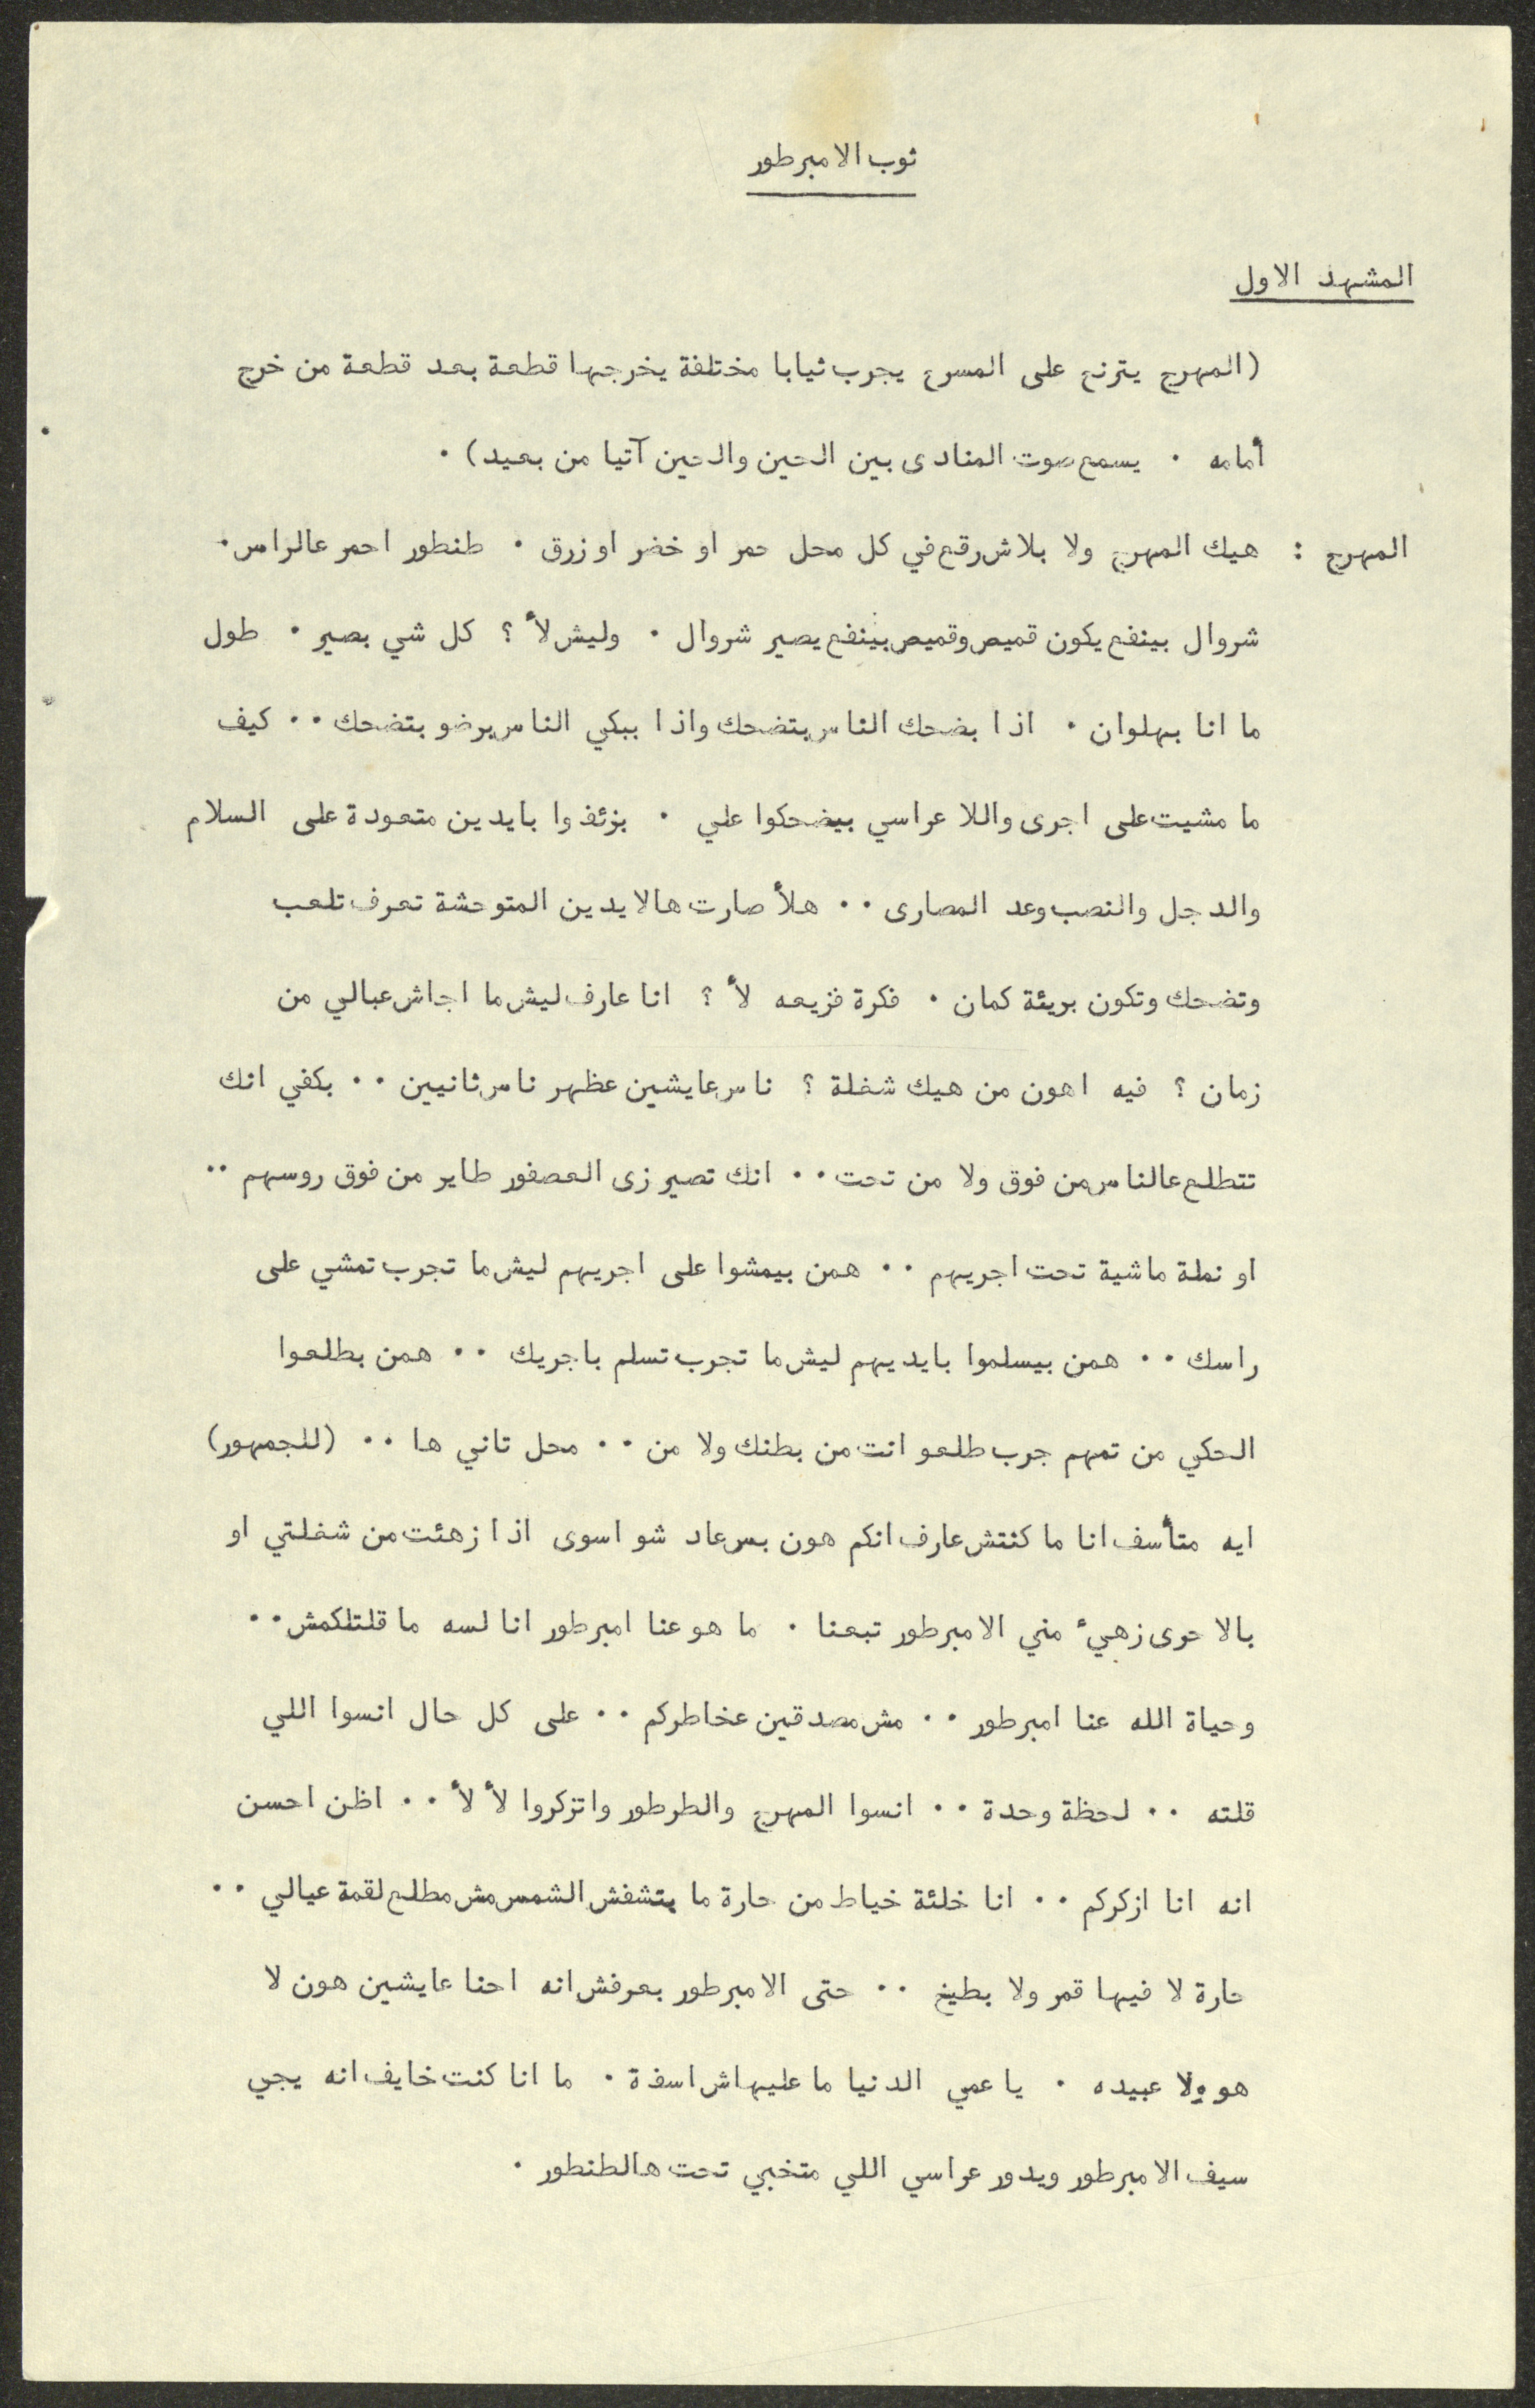 ثوب الامبرطور
المشهد الاول
(المهرج يترنح على المسرح يجرب ثيابا مختلفة يخرجها قطعة بعد قطعة من خرج
أمامه . يسمع صوت المنادى بين الحين والحين آتيا من بعيد) .
المهرج : هيك المهرج ولا بلاش رقع في كل محل حمر او خضر او زرق . طنطور احمر عالراس.
شروال بينفع يكون قميص وقميص بينفع يصير شروال . وليش لأ ؟ كل شي بصير . طول
ما انا بهلوان . اذا بضحك الناس بتضحك واذا ببكي الناس برضو بتضحك .. كيف
ما مشيت على اجرى واللا عراسي بيضحكوا علي . بزئفوا بايدين متعودة على السلام
والدجل والنصب وعد المصارى .. هلأ صارت هالايدين المتوحشة تعرف تلعب
وتضحك وتكون بريئة كمان . فكرة فزيعه لأ ؟ انا عارف ليش ما اجاش عبالي من
زمان ؟ فيه اهون من هيك شغلة ؟ ناس عايشين عظهر ناس ثانيين .. بكفي انك
تتطلع عالناس من فوق ولا من تحت .. انك تصير زى العصفور طاير من فوق روسهم ..
او نملة ماشية تحت اجريهم .. همن بيمشوا على اجريهم ليش ما تجرب تمشي على
راسك .. همن بيسلموا بايديهم ليش ما تجرب تسلم باجريك .. همن بطلعوا
الحكي من تمهم جرب طلعو انت من بطنك ولا من .. محل تاني ها .. (للجمهور)
ايه متأسف انا ما كنتش عارف انكم هون بس عاد شو اسوى اذا زهئت من شغلتي او
بالاحرى زهيء مني الامبرطور تبعنا . ما هو عنا امبرطور انا لسه ما قلتلكمش ..
وحياة الله عنا امبرطور .. مش مصدقين عخاطركم .. على كل حال انسوا اللي
قلته .. لحظة وحدة .. انسوا المهرج والطرطور واتزكروا لأ لأ .. اظن احسن
انه انا ازكركم .. انا خلئة خياط من حارة ما بتشفش الشمس مش مطلع لقمة عيالي ..
حارة لا فيها قمر ولا بطيخ .. حتى الامبرطور بعرفش انه احنا عايشين هون لا
هو ولا عبيده . يا عمي الدنيا ما عليهاش اسفة . ما انا كنت خايف انه يجي
سيف الامبرطور ويدور عراسي اللي متخبي تحت هالطنطور .